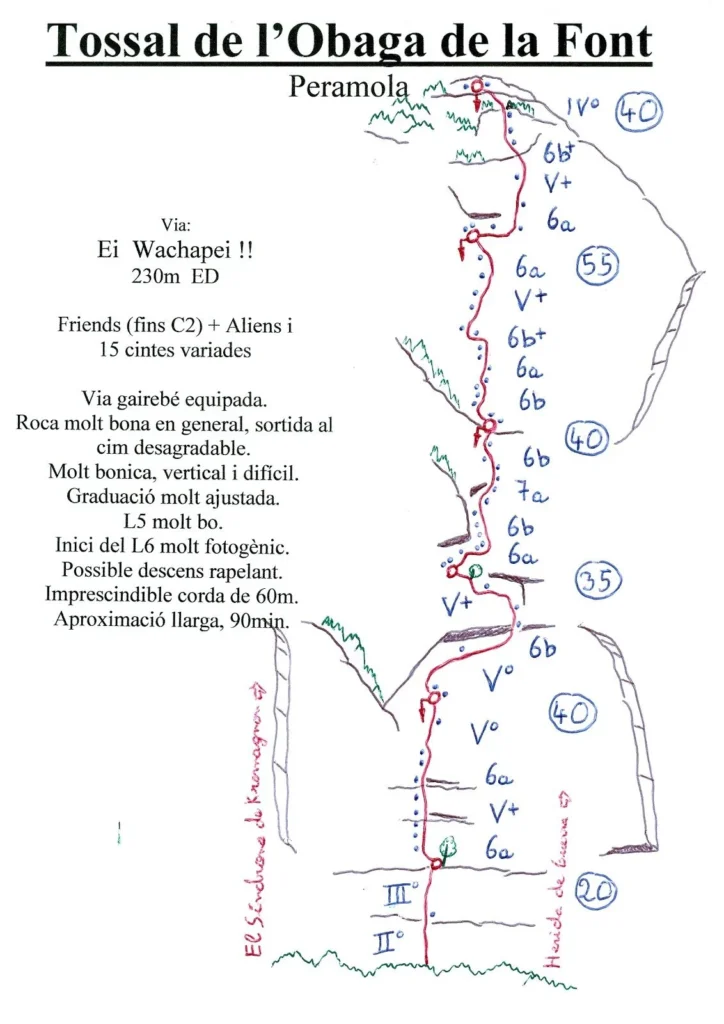 Tossal de l'Obaga de la Font
Peramola
IVº
40
6b+
V+
6a
Via:
Ei Wachapei !!
230m ED
Friends (fins C2) + Aliens i
15 cintes variades
Via gairebé equipada.
Roca molt bona en general, sortida al
cim desagradable.
Molt bonica, vertical i difícil.
Graduació molt ajustada.
L5 molt bo.
Inici del L6 molt fotogènic.
Possible descens rapelant.
Imprescindible corda de 60m.
Aproximació llarga, 90min.
55
6a
V+
6b+
6a
6b
40
6b
7a
6b
6a
35
V+
6b
Vº
40
Vº
6a
V+
6a
20
IIIº
IIº
El Síndrome de Kromagnon ⇨
Herida de Guerra ⇨